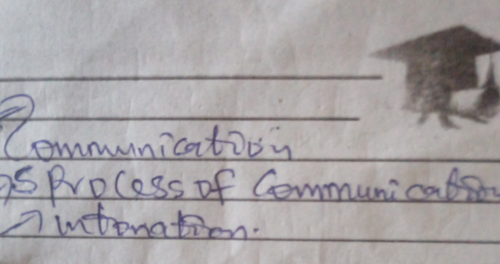 Communication
Process of Communication
→ intonation.